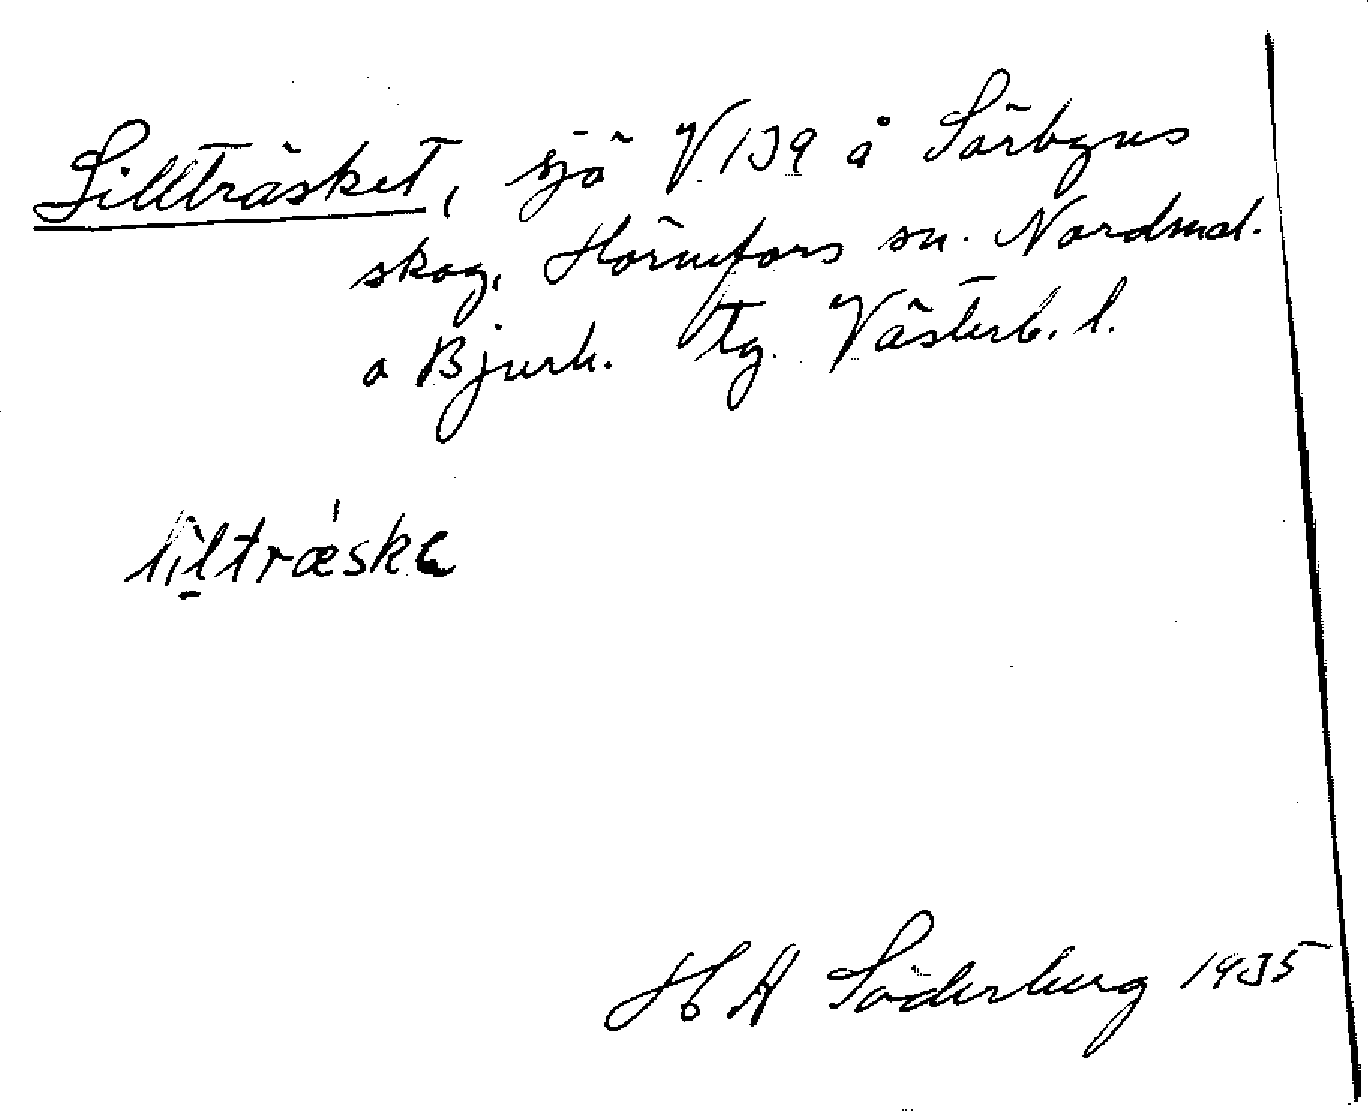 Lillträsket, sjö V 139 å Sörbyns
skog, Hörnefors sn. Nordmal.
o Bjurh. tg. Västerb. l.
liltrǽskɐ
H A Söderberg 1935